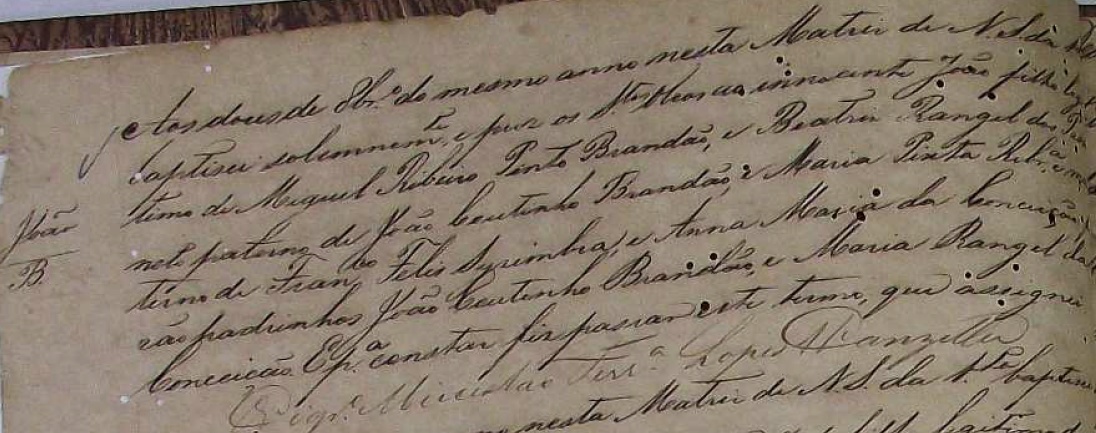 Aos dous de 8br.º do mesmo anno nesta Matriz de N. S. da
João
B.
baptisei solemnem.te e puz os S.tos Oleos ao innocente João filho legi
timo de Miguel Ribeiro Pinto Brandão, e Beatriz Rangel dos
neto paterno de João Coutinho Brandão, e Maria Pinta Ribr.a, e ma
terno de Fran.co Felis Syrimba, e Anna Maria da Conceição,
rão padrinhos João Coutinho Brandão, e Maria Rangel da
Conceicão. E p.a constar fiz passar este termo, que assignei
Vigr.º Lopes
nesta Matriz de N. S. da V.ta baptisei